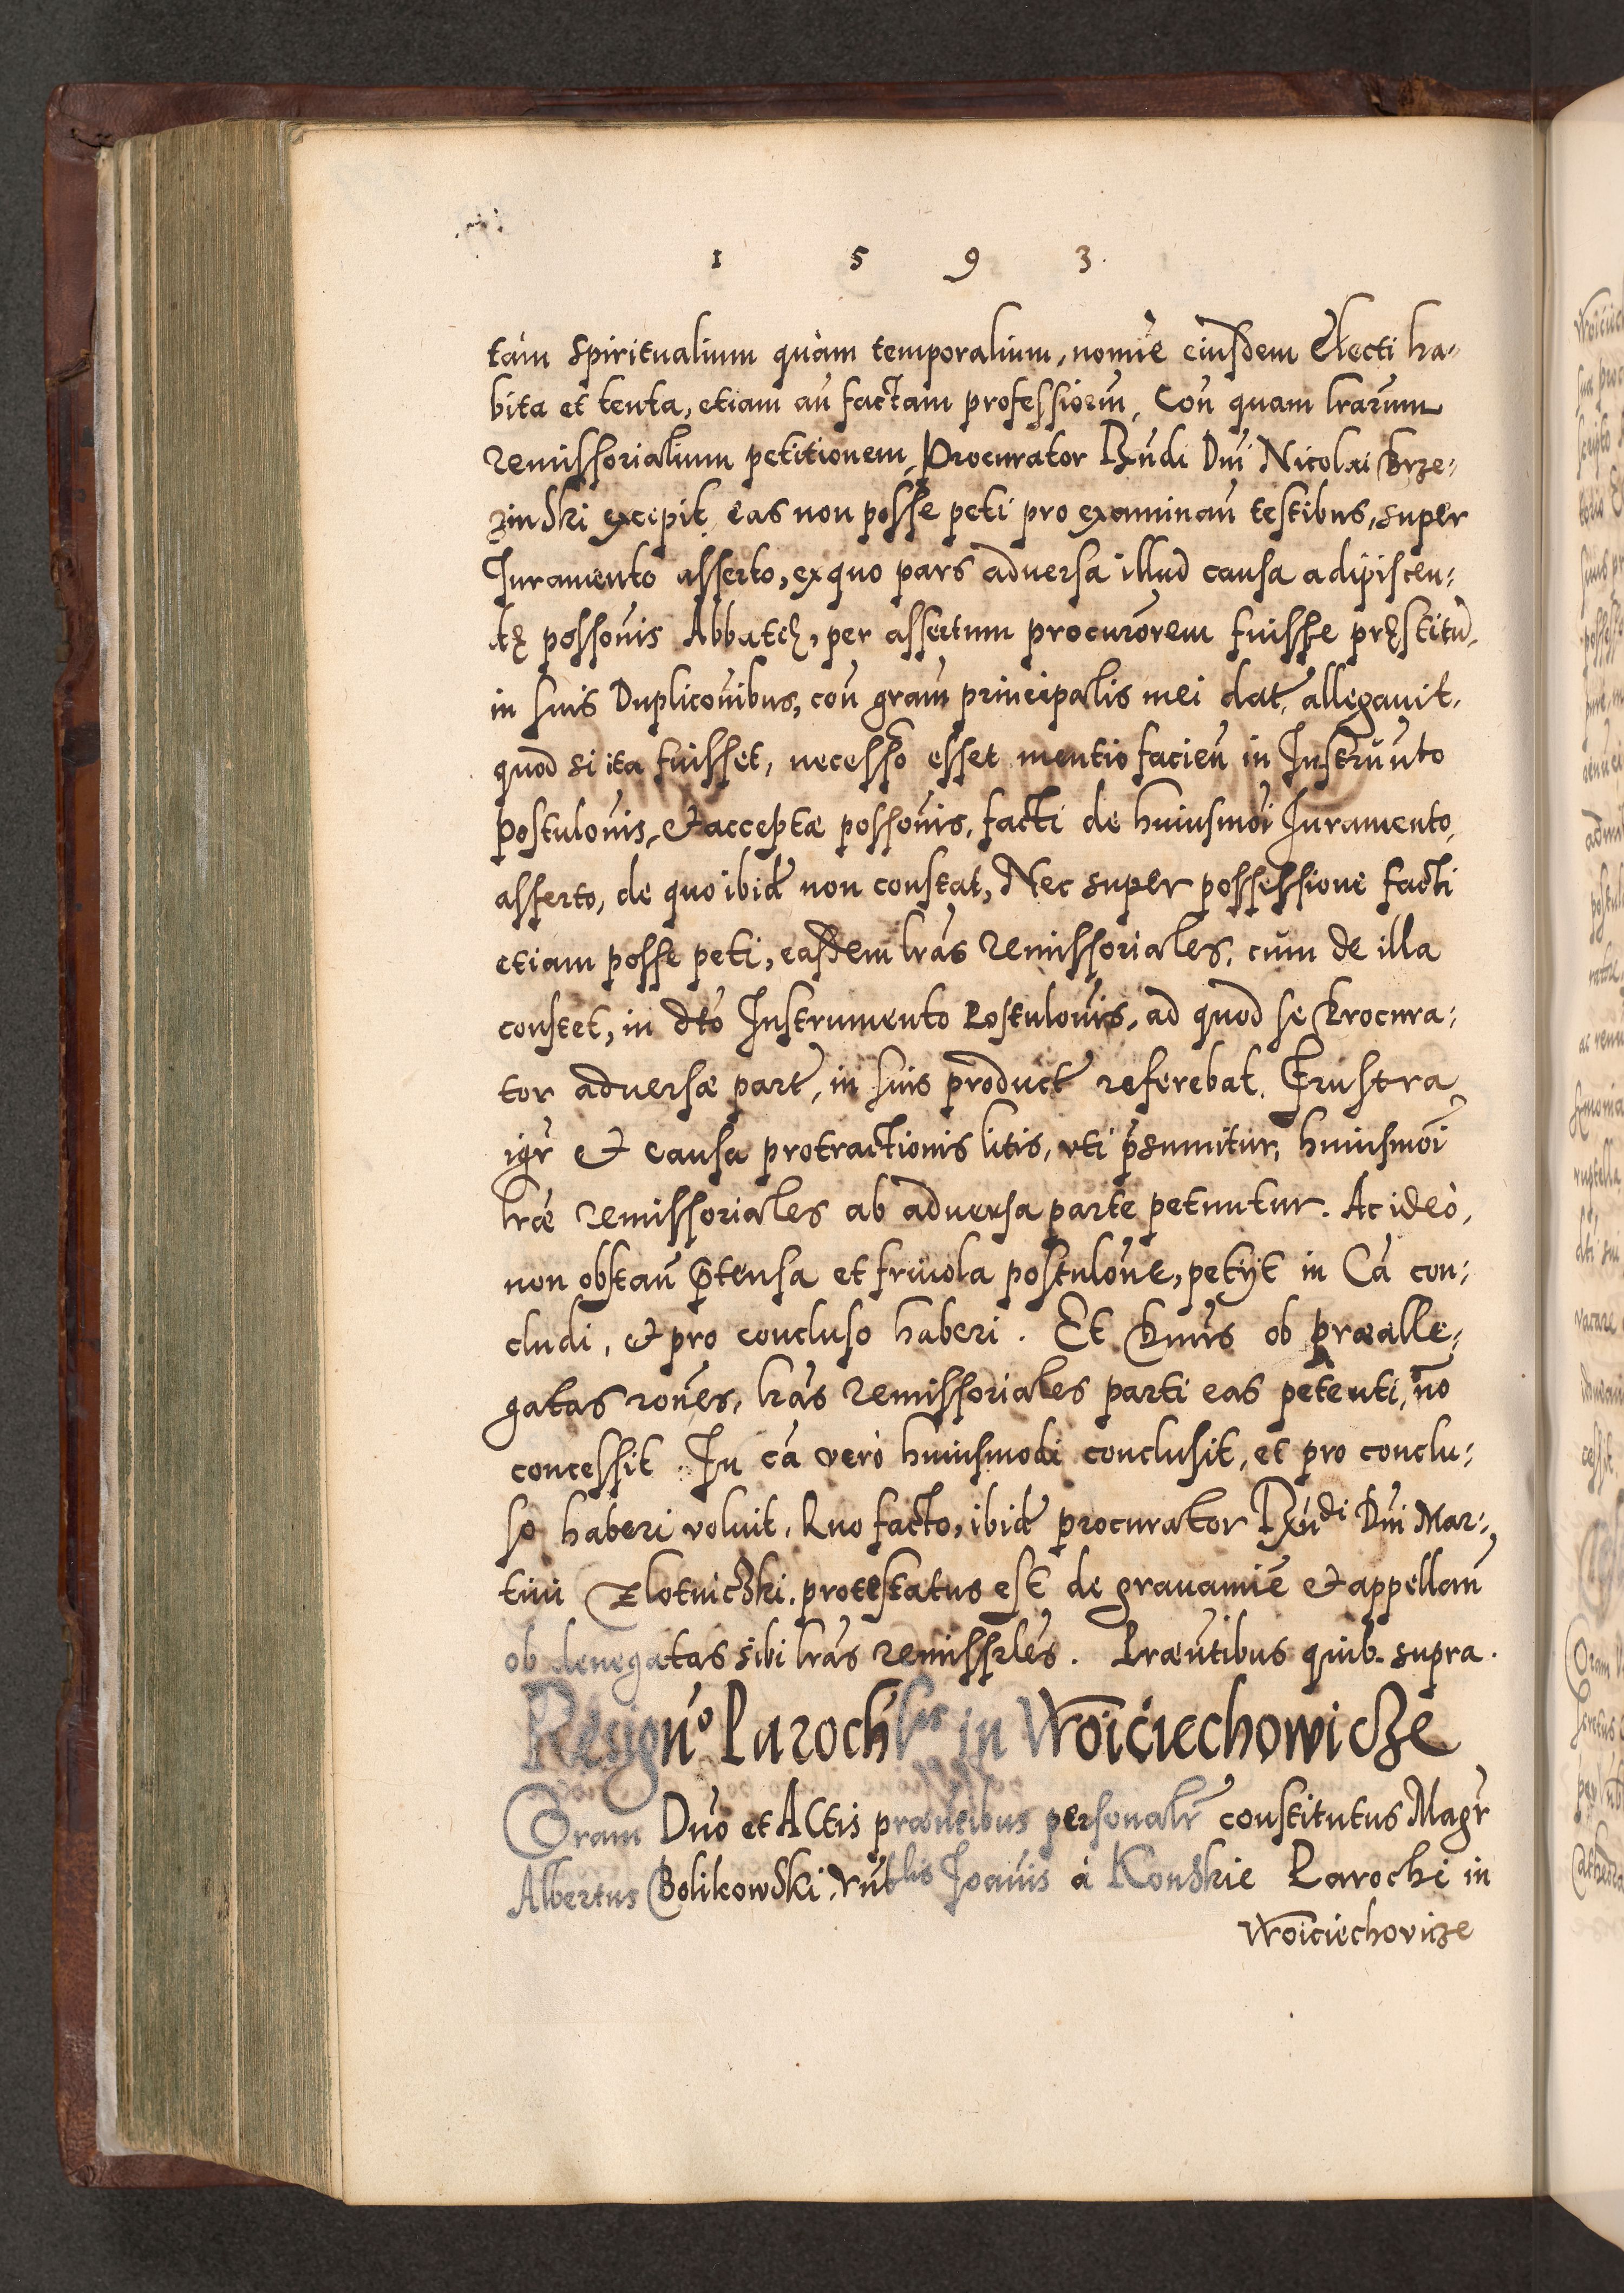 1 5 9 3
tàm spiritualium quàm temporalium, nomīe eiusdem Electi ha-
bita et tenta, etiam añ factam professioem̃, Coñ quam lrarum
remissorialium petitionem, Procurator Rñdi Dñi Nicolai Brze-
zinski excipit, eas non posse peti pro examinañ testibus, super
Iuramento asserto, ex quo pars adversa illud causa adipiscen-
dę possoñis Abbatię, per assertum procurõrem fuisse pręstitũ
in suis Duplicoñibus, coñ gram̃ principalis mei dat, allegavit.
quod si ita fuisset, necessõ esset mentio facieñ in Instrũnto
Postuloñis, et acceptæ possoñis, facti de huiusmõi Iuramento,
asserto, de quo ibid̃ non constat, Nec super possessione facti
etiam posse peti, easdem lrãs remissoriales, cùm de illa
constet, in dtõ Instrumento Postuloñis, ad quod se Procura-
tor adversæ part̃, in suis product̃ referebat. Frustra
igr̃ et causa protractionis litis, uti p̃sumitur, huiusmõi
lræ̃ remissoriales ab adversa parte petuntur. Ac ideò,
non obstañ p̃tensa et frivola postulõne, petijt in Cã con-
cludi, et pro concluso haberi. Et Dnus ob præalle-
gatas roñes, lrãs remissoriales parti eas petenti, nõ
concessit. In cã verò huiusmodi conclusit, et pro conclu-
so haberi voluit. Quo facto, ibid̃ procurator Rñdi Dñi Mar-
tini Zlotnicski. protestatus est de gravamīe et appellañ
ob denegatas sibi lrãs remissrles. Præñtibus quib. supra.
Resigño Parochlis in Woiciechowicze
Coram Dño et Actis præñtibus personalr̃ constitutus Magr̃
Albertus Bolikowski, Ioañis à Konskie Parochi in
Woiciechovicze